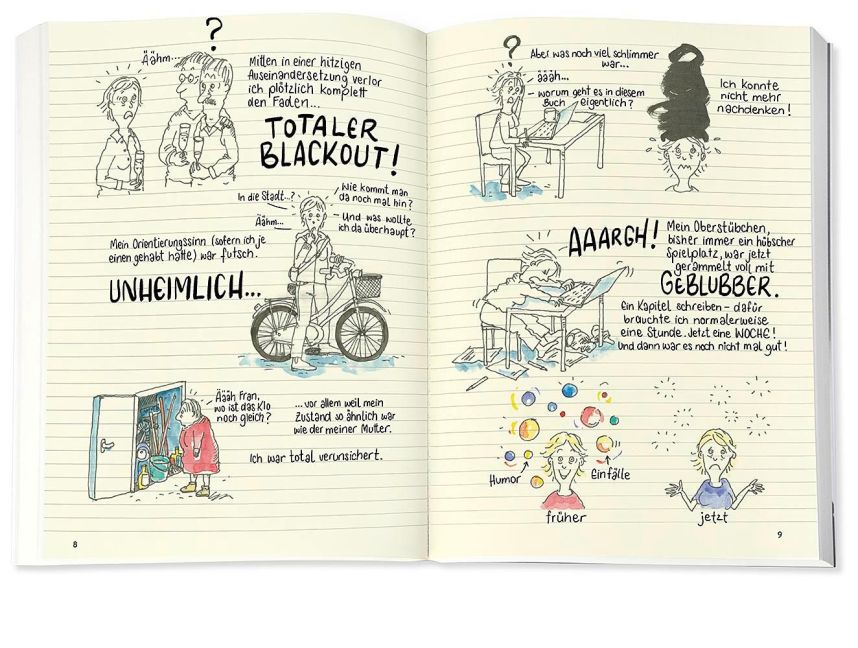 ?
Äähm...
Mitten in einer hitzigen
Auseinandersetzung verlor
ich plötzlich komplett
den Faden...
TOTALER
BLACKOUT!
In die Stadt..?
Äähm...
Wie kommt man
da noch mal hin?
Und was wollte
ich da überhaupt?
Mein Orientierungssinn (sofern ich je
einen gehabt hatte) war futsch.
UNHEIMLICH...
Äääh Fran,
wo ist das Klo
noch gleich?
...vor allem weil mein
Zustand so ähnlich war
wie der meiner Mutter.
Ich war total verunsichert.
8
?
Aber was noch viel schlimmer
war...
äääh...
worum geht es in diesem
Buch eigentlich?
Ich konnte
nicht mehr
nachdenken!
AAARGH!
Mein Oberstübchen,
bisher immer ein hübscher
Spielplatz, war jetzt
gerammelt voll mit
GEBLUBBER.
Ein Kapitel schreiben – dafür
brauchte ich normalerweise
eine Stunde. Jetzt eine WOCHE!
Und dann war es noch nicht mal gut!
Humor
Einfälle
früher
jetzt
9